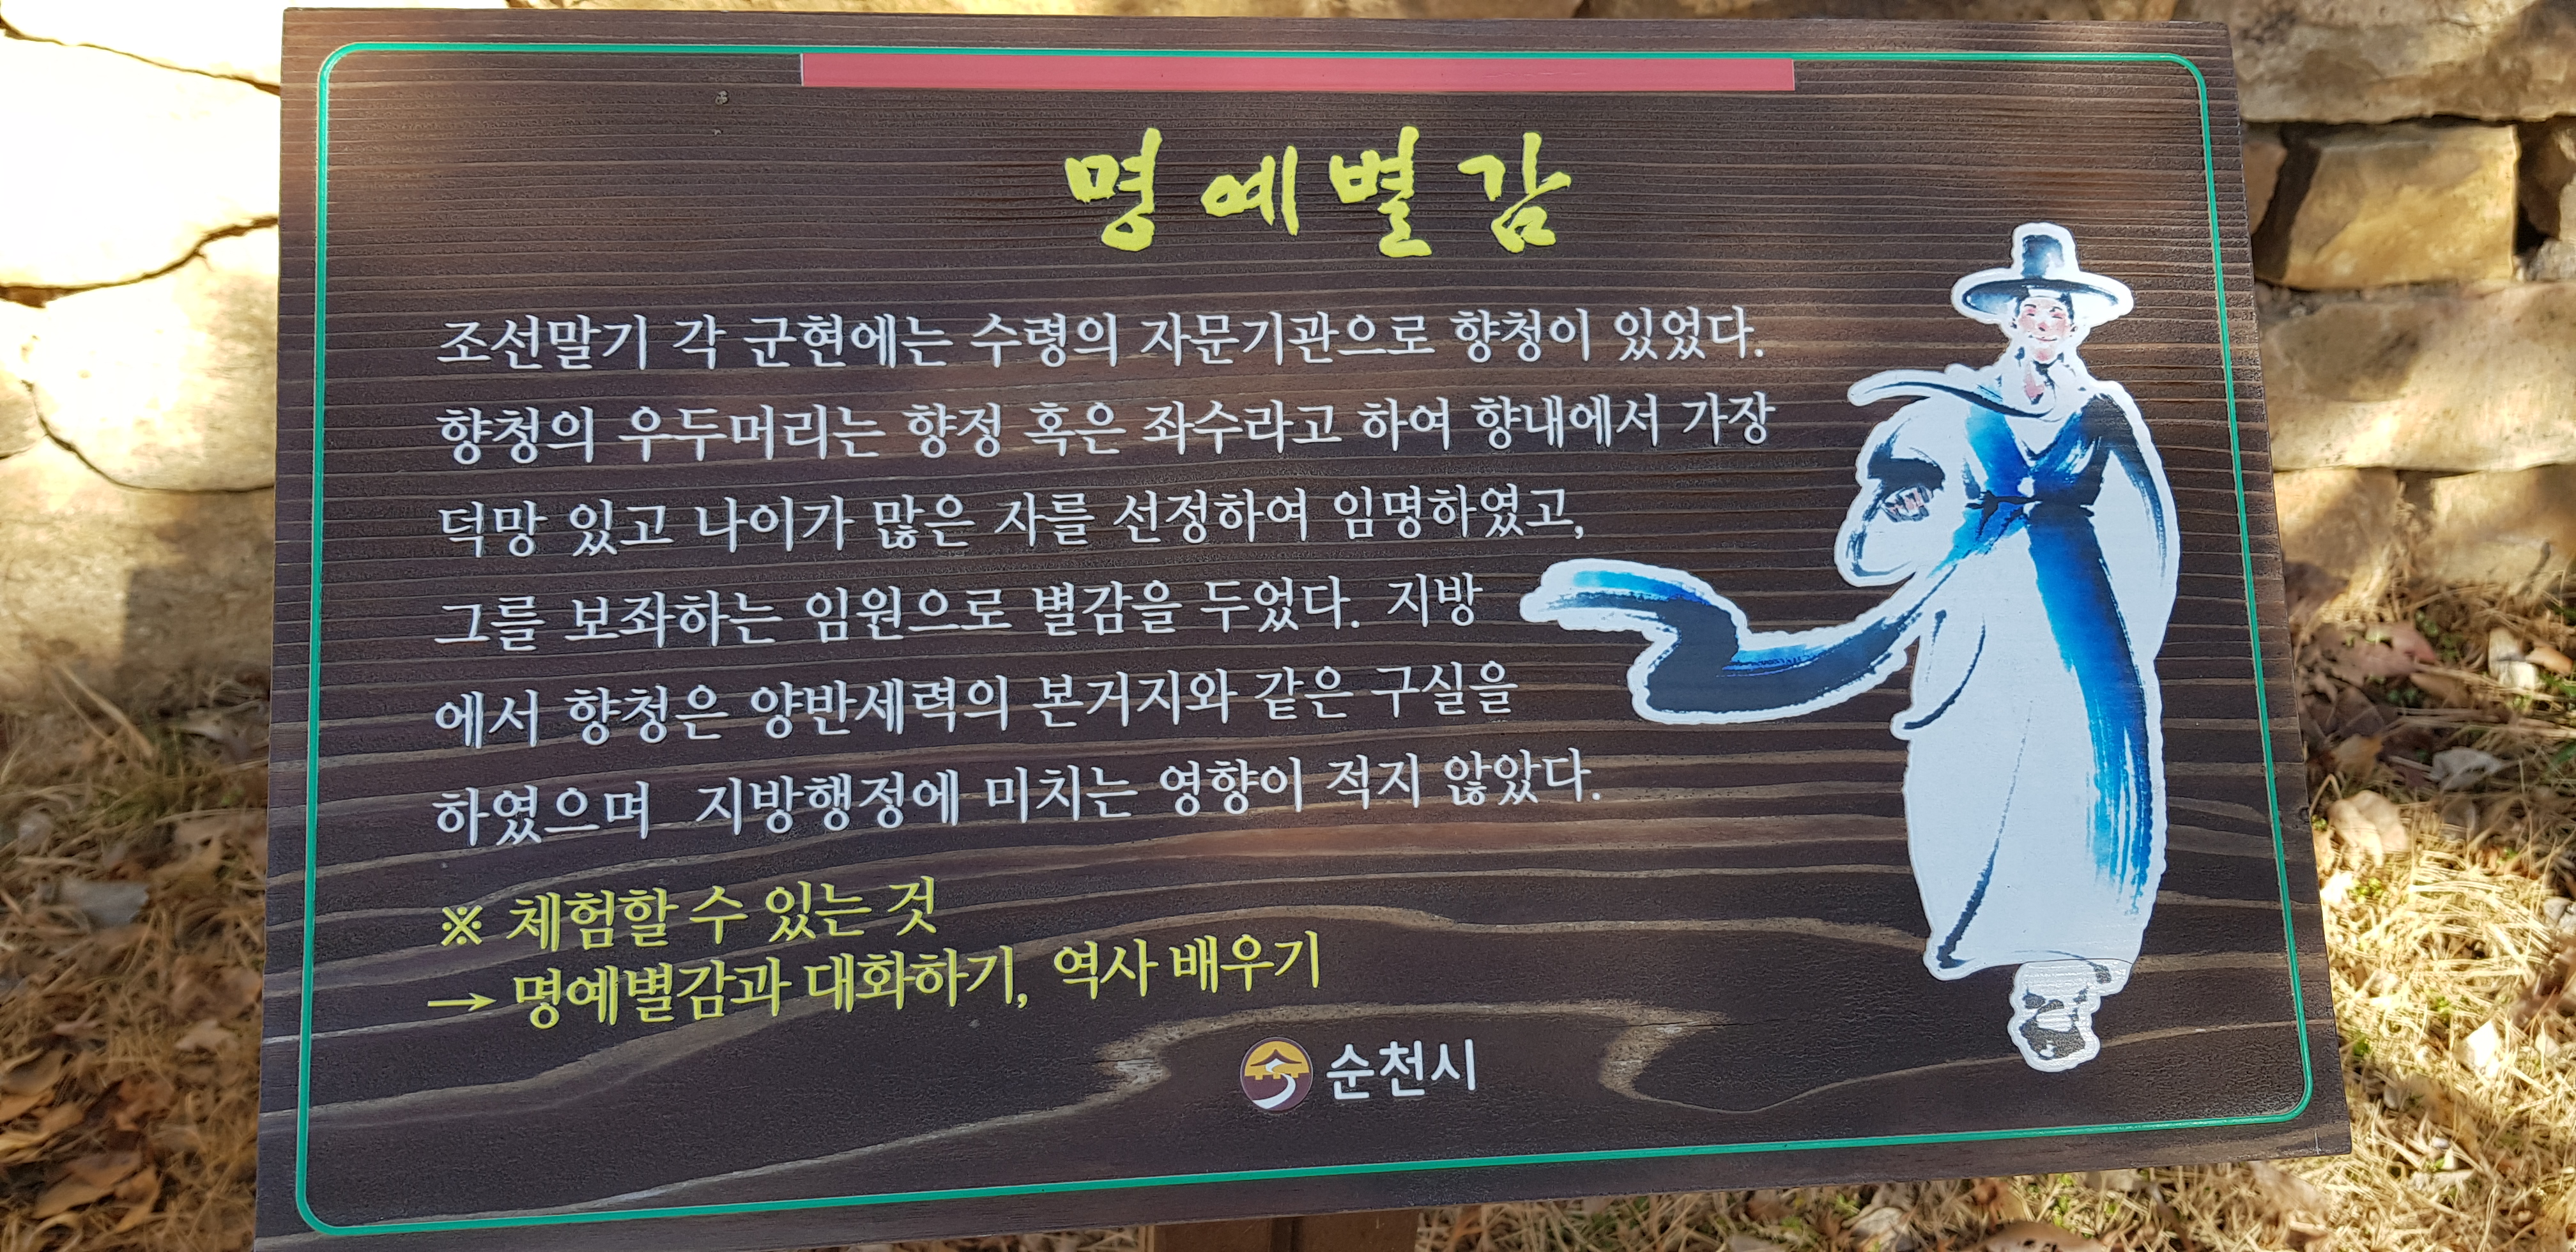 명예별감
조선말기 각 군현에는 수령의 자문기관으로 향청이 있었다.
향청의 우두머리는 향정 혹은 좌수라고 하여 향내에서 가장
덕망 있고 나이가 많은 사를 선정하여 임명하였고,
그를 보좌하는 임원으로 별감을 두었다. 지방
에서 향청은 양반세력의 본거지와 같은 구실을
하였으며 지방행정에 미치는 영향이 적지 않았다.
※ 체험할 수 있는 것
→ 명예별감과 대화하기, 역사 배우기
순천시